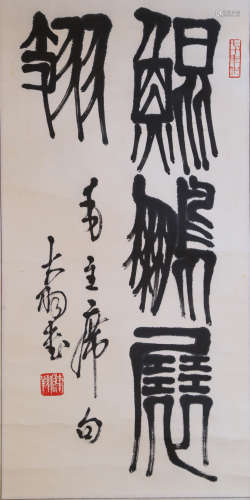 鲲鹏展
翅
毛主席句
大翔書